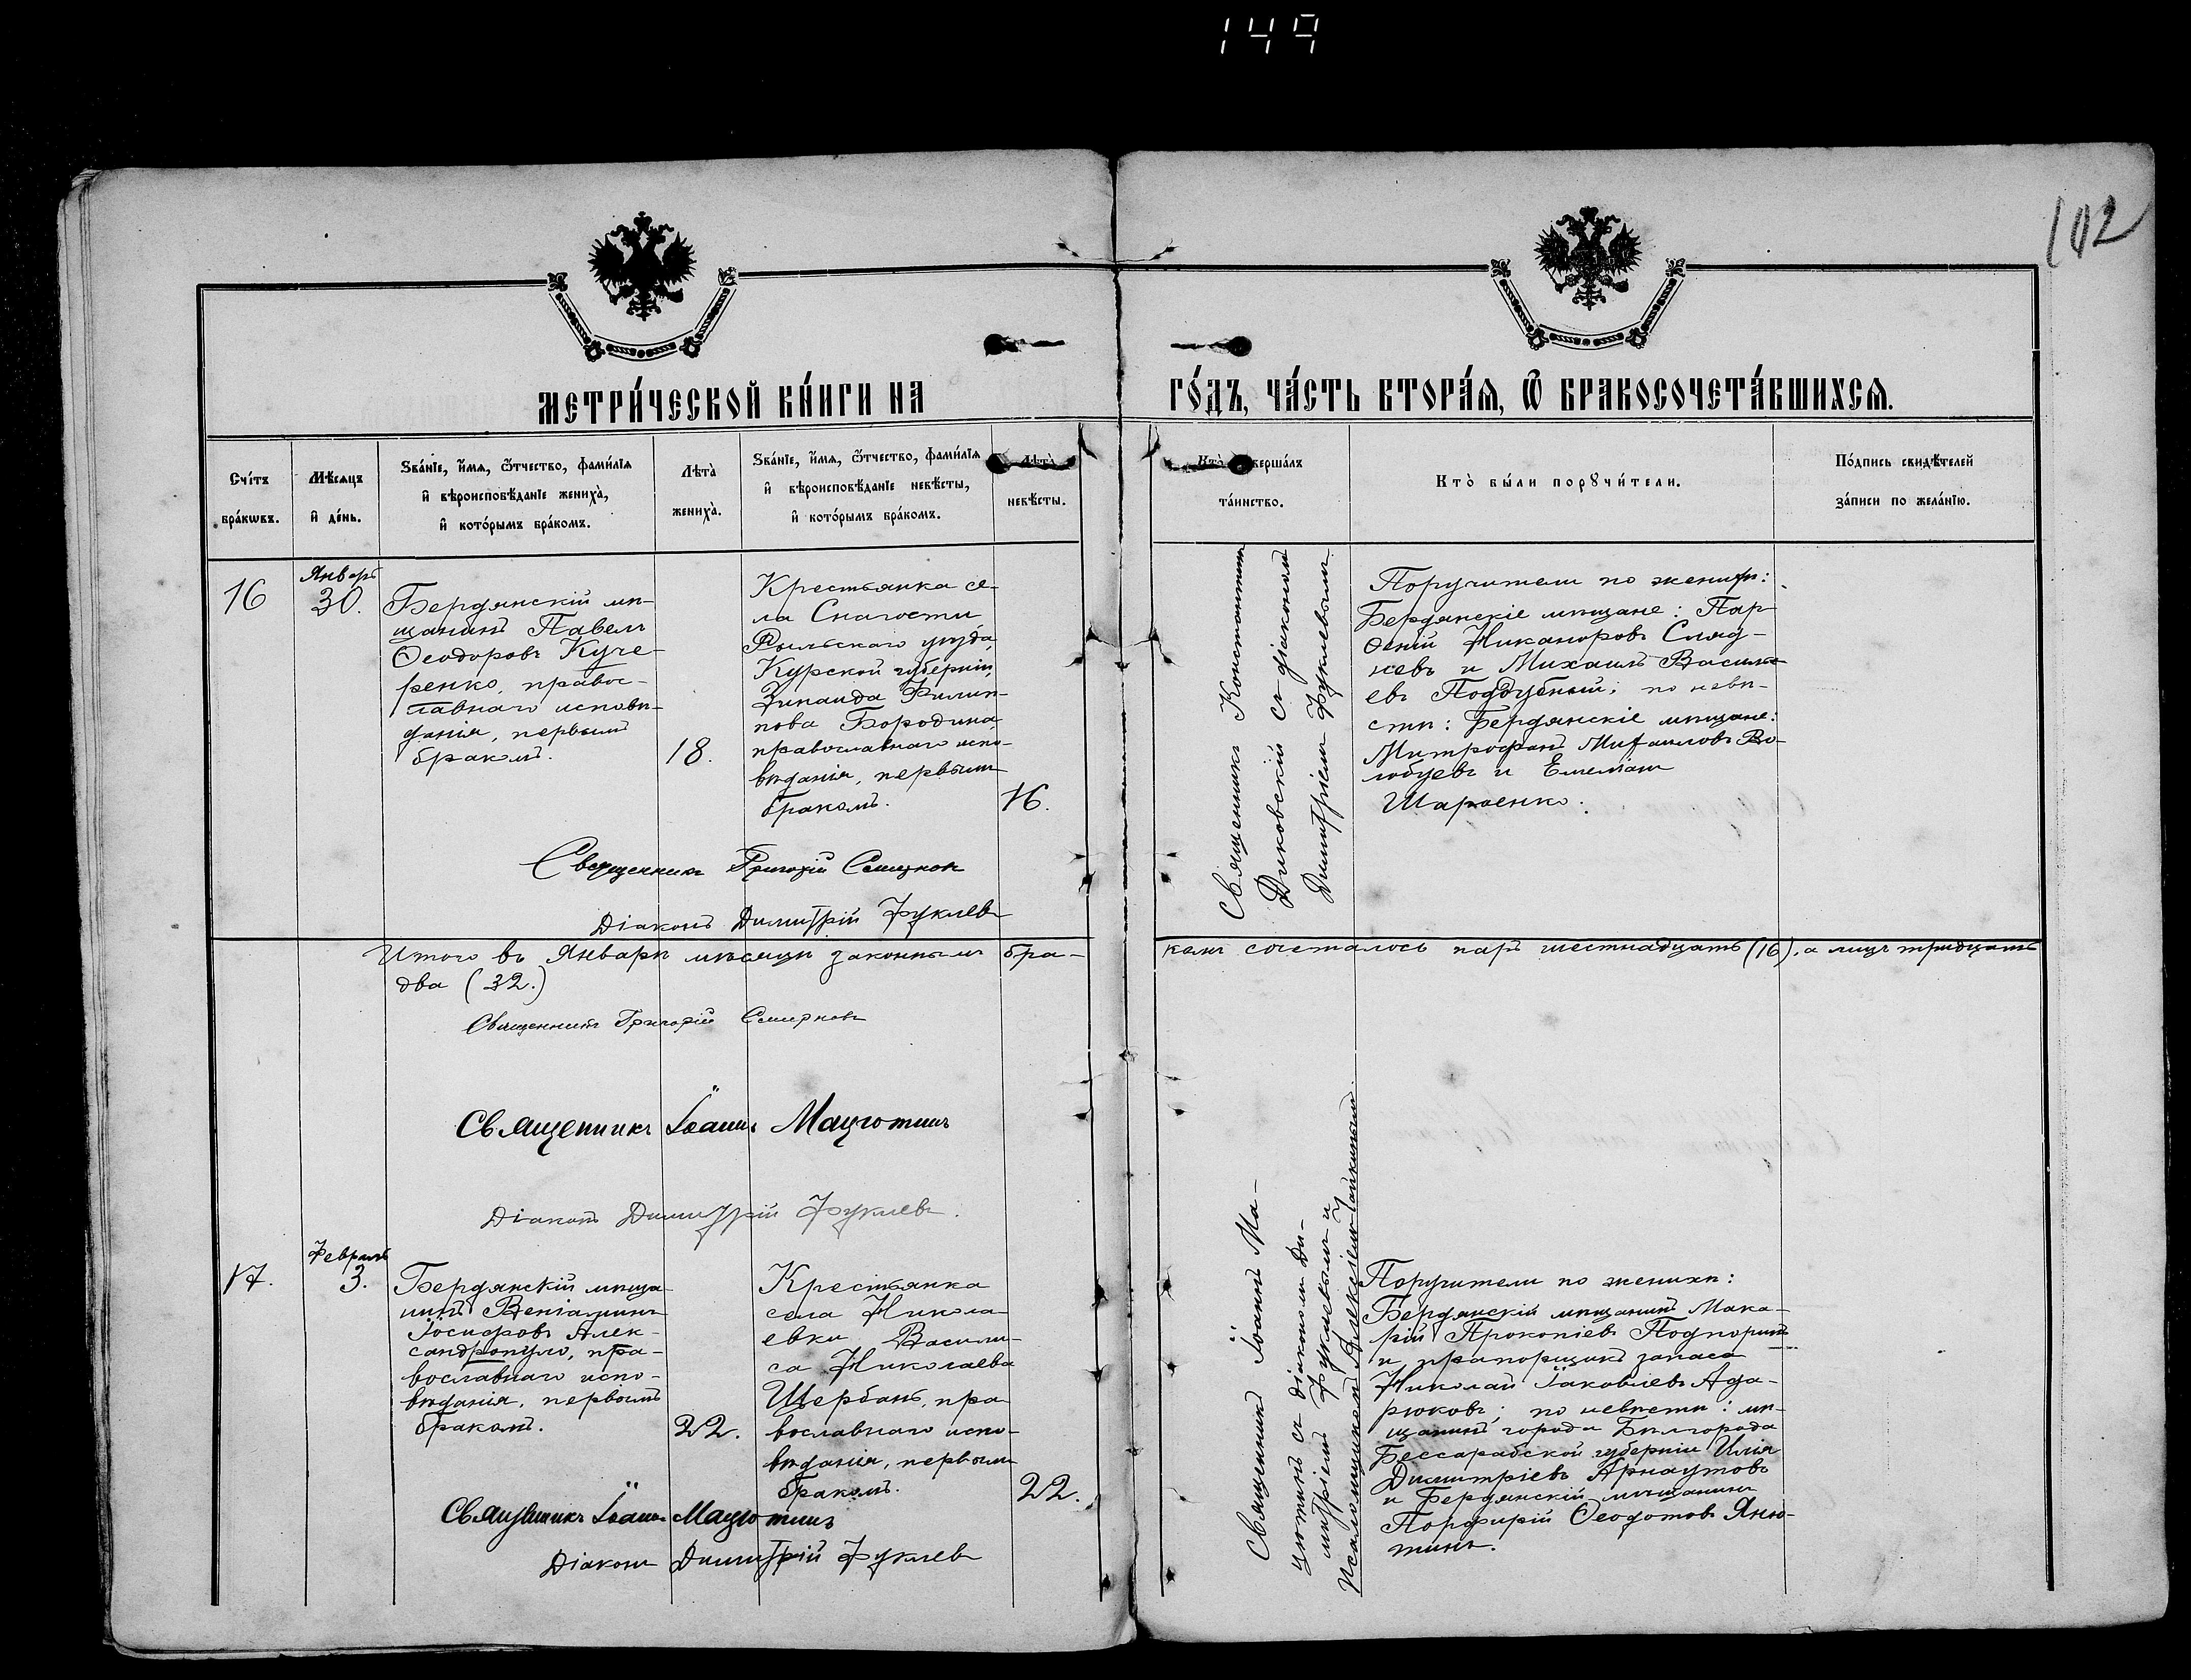 149
102
МЕТРИ́ЧЕСКОЙ КНИ́ГИ НА ГО́ДЪ, ЧА́СТЬ ВТОРА́Ѧ, Ѽ БРАКОСОЧЕТА́ВШИХСѦ.
Сче́тъ бра́кѡвъ.
Мѣ́сѧцъ и҆ де́нь.
Ѕва́нїе, и҆́мѧ, ѻ҆́тчество, фами́лїѧ
и҆ вѣроисповѣ́данїе жениха̀,
и҆ кото́рымъ бра́комъ.
Лѣта̀ жениха̀.
Ѕва́нїе, и҆́мѧ, ѻ҆́тчество, фами́лїѧ
и҆ вѣроисповѣ́данїе невѣ́сты,
и҆ кото́рымъ бра́комъ.
Лѣта̀ невѣ́сты.
Кто̀ совершалъ
та́инство.
Кто̀ бы́ли порꙋчи́тели.
По́дпись свидѣ́телей
за́писи по жела́нїю.
16
Январь
30.
Бердянскій мѣ-
щанинъ Павелъ
Ѳеодоровъ Куче-
ренко, правос-
лавнаго исповѣ-
данія, первымъ
бракомъ.
18.
Крестьянка се-
ла Снагости
Рыльскаго уѣзда,
Курской губерніи,
Зинаида Филип-
пова Бородина
православнаго испо-
вѣданія, первымъ
бракомъ.
16.
Священникъ Константинъ
Диковскій съ діакономъ
Димитріемъ Фуклевымъ.
Поручители по женихѣ:
Бердянскіе мѣщане: Пар-
ѳеній Никаноровъ Сляд-
невъ и Михаилъ Василь-
евъ Поддубный; по невѣ-
стѣ: Бердянскіе мѣщане:
Митрофанъ Михаиловъ Во-
лобуевъ и Емеліан
Священникъ Григорій Смирнов
Діаконъ Димитрій Фуклевъ
Итого въ Январѣ мѣсяцѣ законнымъ бра-
комъ сочеталось паръ шестнадцать (16), а лицъ тридцать
два (32.)
Священникъ Григорій Смирновъ
Священникъ Іоаннъ Мацютинъ
Діаконъ Димитрій Фуклевъ.
17.
Февраль
3.
Бердянскій мѣща-
нинъ Веніаминъ
Іосифовъ Алек-
сандропуло, пра-
вославнаго испо-
вѣданія, первымъ
бракомъ.
22.
Крестьянка
села Никола-
евки Васили-
са Николаева
Щербань, пра-
вославнаго испо-
вѣданія, первымъ
бракомъ.
22.
Священникъ Іоаннъ Ма-
цютинъ съ діакономъ Ди-
митріемъ Фуклевымъ и
псаломщикомъ Алексіемъ
Поручители по женихѣ:
Бердянскій мѣщанинъ Мака-
рій Прокопіевъ
и прапорщикъ запаса
Николай Іаковлевъ Ада-
рюковъ; по невѣстѣ: мѣ-
щанинъ города Бѣлгорода
Бессарабской губерніи Илія
Димитріевъ Арнаутовъ
и Бердянскій мѣщанинъ
Порфирій Ѳеодотовъ Аню-
тинъ.
Священникъ Іоаннъ Мацютинъ
Діаконъ Димитрій Фуклевъ